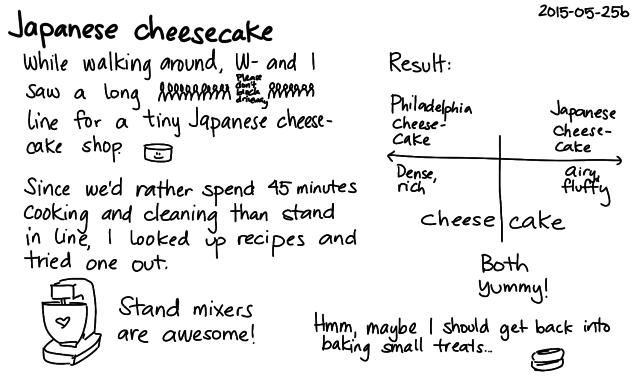 2015-05-25b
Japanese cheesecake
While walking around, W- and I
saw a long
Please
don't
block
driveway
line for a tiny Japanese cheese-
cake shop.
Since we'd rather spend 45 minutes
cooking and cleaning than stand
in line, I looked up recipes and
tried one out.
Stand mixers
are awesome!
Result:
Philadelphia
cheese-
cake
Japanese
cheese-
cake
Dense,
rich
airy,
fluffy
cheese cake
Both
yummy!
Hmm, maybe I should get back into
baking small treats...